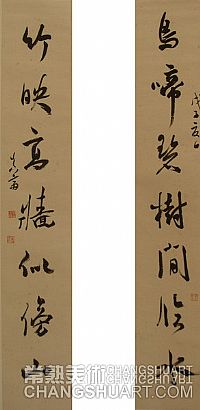 鳥啼碧樹間臨水
戊子夏日
竹映高牆似傍山
常熟美術 CHANGSHUART
CHANGSHUART.COM